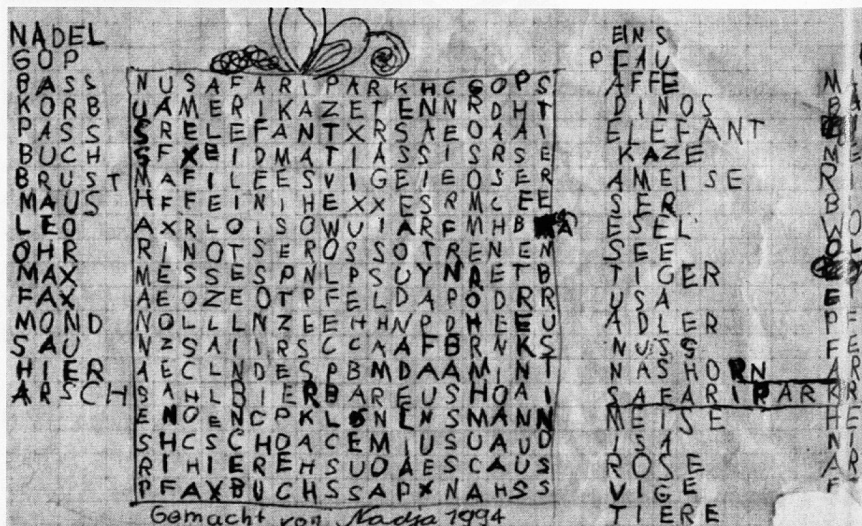 NADEL
GOP
BASS
KORB
PASS
BUCH
BRUST
MAUS
LEO
OHR
MAX
FAX
MOND
SAU
HIER
ARSCH
N U S A F A R I P A R K H C G O P S
U A M E R I K A Z E T E N N R D H T
S R E L E F A N T X R S A E O A A I
S F X E I D M A T I A S S I S R S E
M A F I L E E S V I G E I E O S E R
H F F E I N I H E X X E S R M C E E
A X R L O I S O W U I A R F M H B A
R I N O T S E R O S S O T R E N E N
M E S S E S P N L P S U Y N R E T B
A E O Z E O T P F E L D A P O D R R
N O L L L N Z E E H H N P D H E E U
N Z S A I I R S C C A A F B R N K S
A E C L N D E S P B M D A A M I N T
S A H L B I E R B A R E U S H O A I
E N O E N C P K L O N L N S M A N N
S H C S C H O A C E M I U S U A U D
R I H I E R E H S U O A E S C A U S
P F A X B U C H S S A P X N A H S S
Gemacht von Nadja 1994
EINS
PFAU
AFFE
DINOS
ELEFANT
KAZE
AMEISE
SER
ESEL
SEE
TIGER
USA
ADLER
NUSS
NASHORN
SAFARIPARK
MEISE
ISA
ROSE
VIGE
TIERE